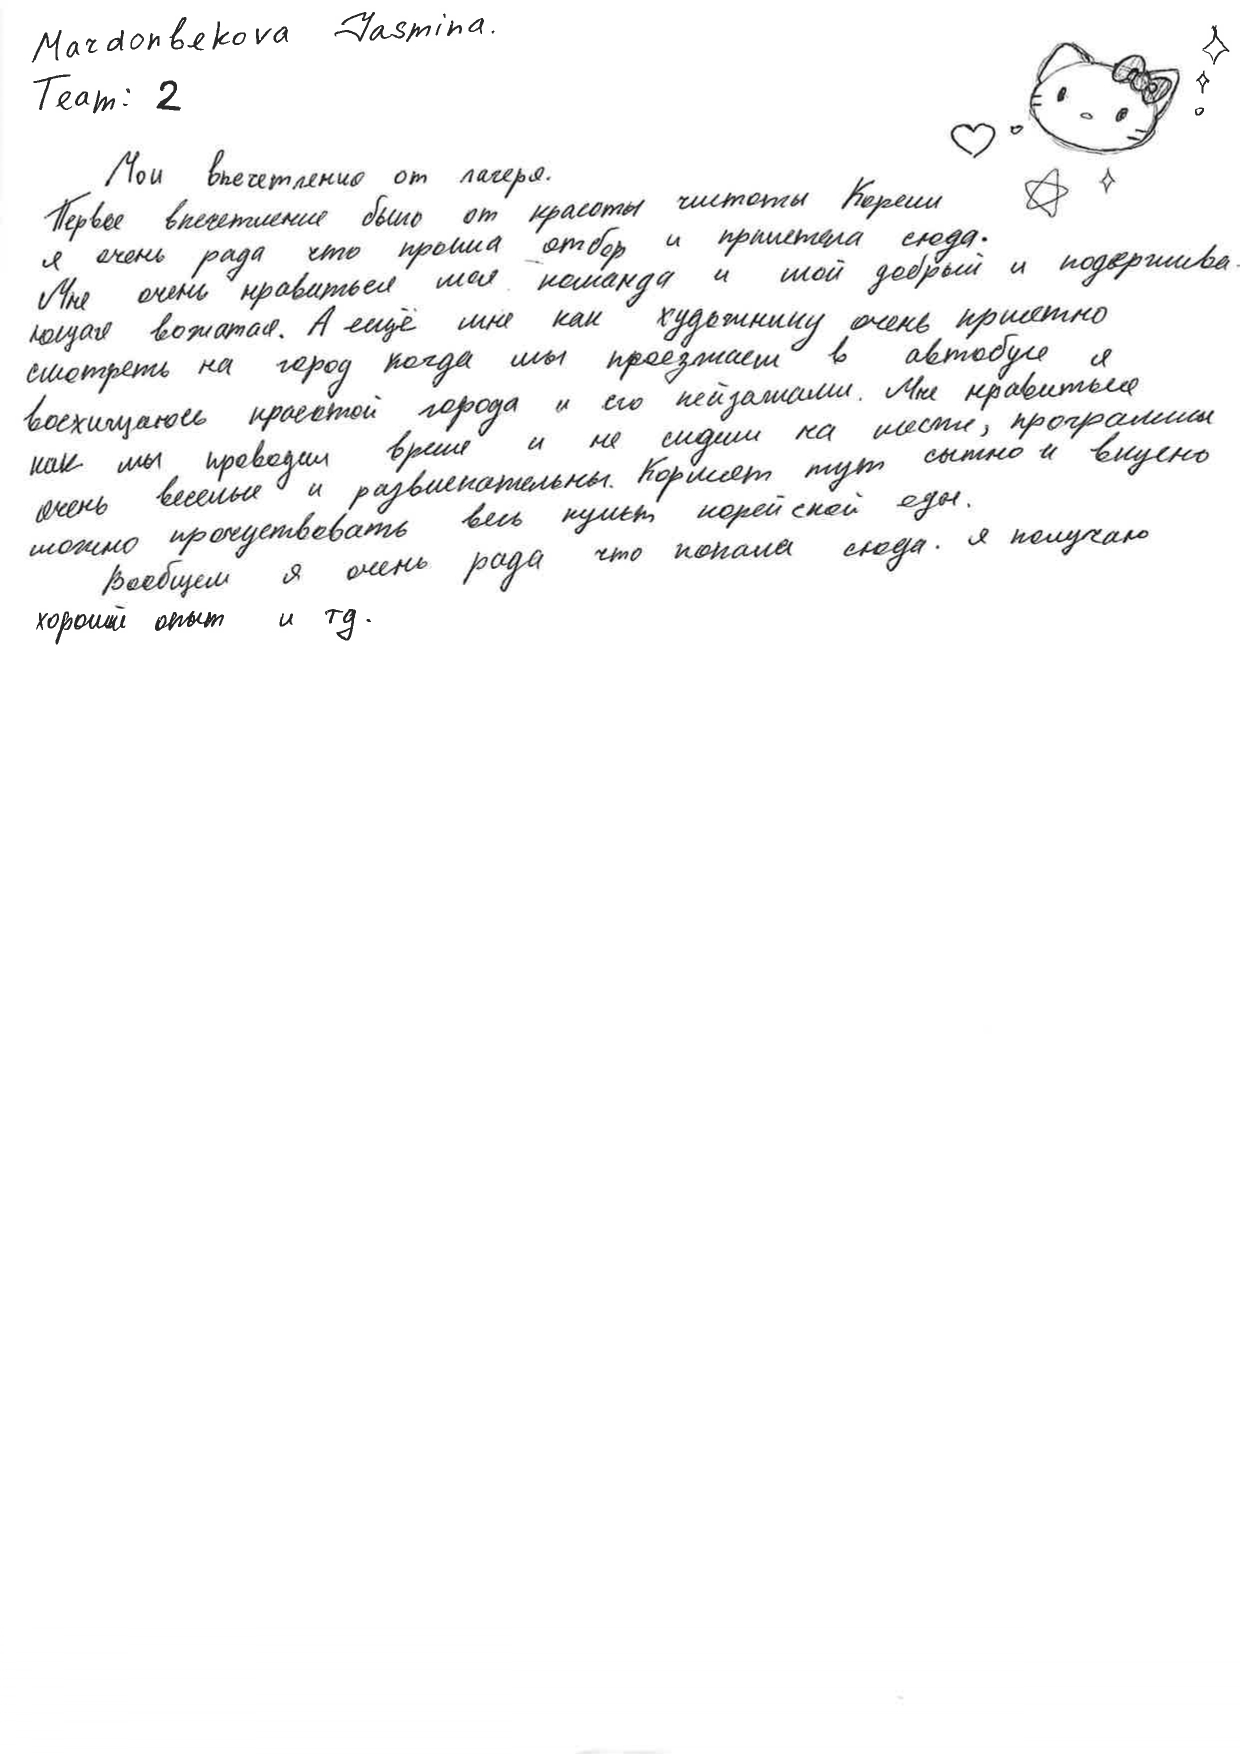 Mardonbekova Jasmina.
Team: 2
Мои впечетление от лагеря.
Первое впечетление было от красоты чистоты Кореии
я очень рада что прошла отбор и прилетела сюда.
Мне очень нравиться моя команда и мой добрый и подержива-
ющая вожатая. А ещё мне как художнику очень приятно
смотреть на город когда мы проезжаем в автобусе я
восхищаюсь красотой города и его пейзажами. Мне нравиться
как мы проводим время и не сидим на месте, программы
очень веселые и развлекательны. Кормят тут сытно и вкусно
можно прочуствовать весь культ корейской еды.
Вообщем я очень рада что попала сюда. я получаю
хороший опыт и тд.